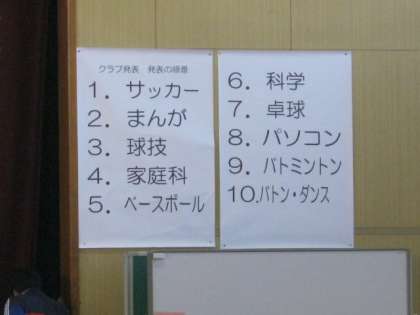 クラブ発表 発表の順番
1. サッカー
2. まんが
3. 球技
4. 家庭科
5. ベースボール
6. 科学
7. 卓球
8. パソコン
9. バトミントン
10.バトン・ダンス